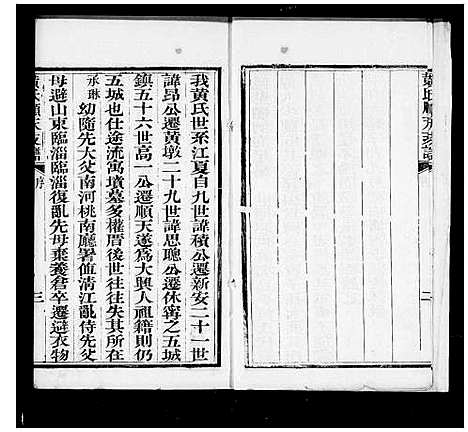 二
我黄氏世系江夏自九世諱積公遷新安二十一世
諱昂公遷黄墩二十九世諱思聰公遷休寧之五城
鎮五十六世高一公遷順天遂爲大興人祖籍則仍
五城也仕途流寓墳墓多權厝後世往往失其所在
承琳幼隨先大父南河桃南廳署值清江亂侍先父
母避山東臨淄臨淄復亂先母棄養倉卒遷避衣物
序
三